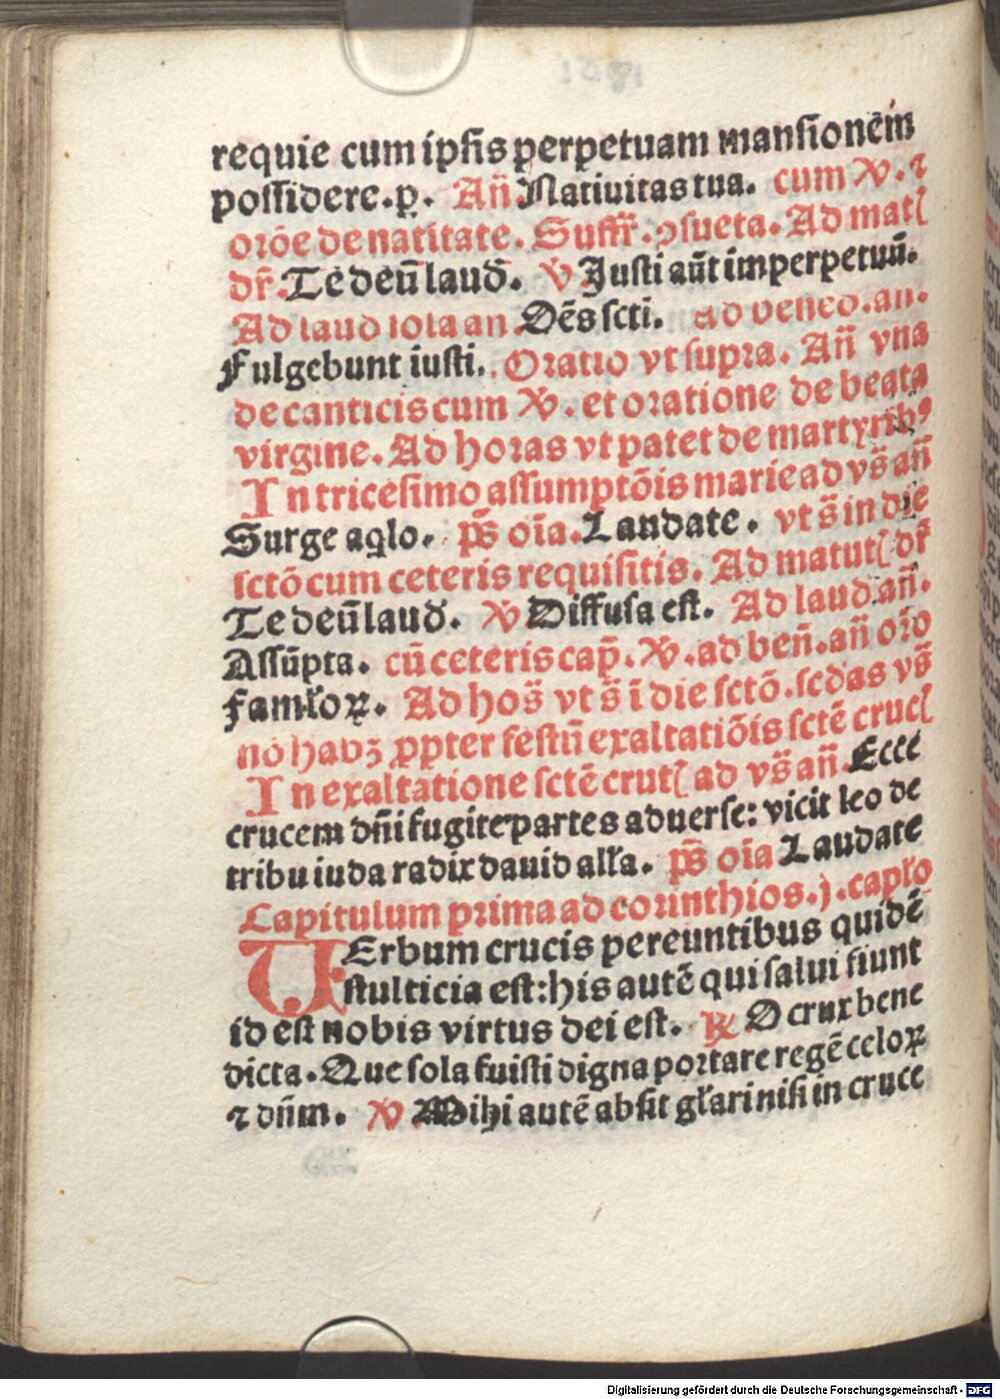 requie cum ipsis perpetuam mansionēm
possidere.p. Añ Natiuitas tua. cum ꝟ. ⁊
orōe de natitate. Suffr̄. ꝯsueta. Ad mat
dr̄. Te deū laud. ꝟ Justi aūt imperpetuū.
Ad laud iola an Oēs scti. ad veneo. an.
Fulgebunt iusti. Oratio vt supra. Añ vna
de canticis cum ꝟ. et oratione de beata
virgine. Ad horas vt patet de martyribꝰ
In tricesimo assumptōis marie ad vs̄ añ
Surge aqlo. ps̄ oīa. Laudate. vt s̄ in die
sctō cum ceteris requisitis. Ad matut dr̄
Te deū laud. ꝟ Diffusa est. Ad laud añ.
Assūpta. cū ceteris cap̄. ꝟ. ad beñ. añ oīo
famłoꝝ. Ad hos̄ vt s̄ ī die sctō. scdas vs̄
nō habꝫ ꝓpter festū exaltatiōis sctē cruc
In exaltatione sctē crut ad vs̄ añ. Ecce
crucem dñi fugite partes aduerse: vicit leo de
tribu iuda radix dauid alła. ps̄ oīa Laudate
Capitulum prima ad corinthios. j. capło
VErbum crucis pereuntibus quidē
stulticia est: his autē qui salui fiunt
id est nobis virtus dei est. ℟ O crux bene
dicta. Que sola fuisti digna portare regē celoꝝ
⁊ dñm. ꝟ Mihi autē absit głari nisi in cruce
Digitalisierung gefördert durch die Deutsche Forschungsgemeinschaft - DFG